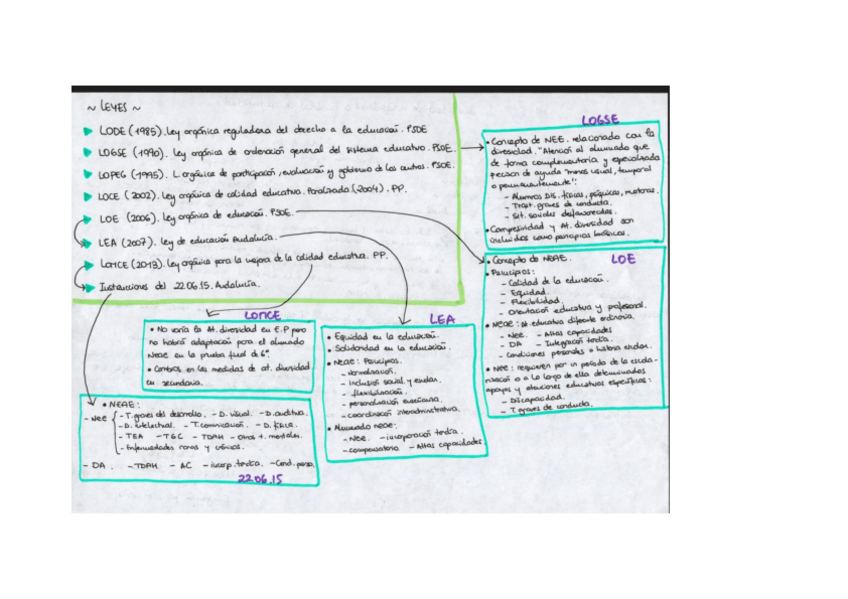 ~ LEYES ~
LODE (1985). Ley orgánica reguladora del derecho a la educación. PSOE
LOGSE (1990). Ley orgánica de ordenación general del sistema educativo. PSOE.
LOPEG (1995). L. orgánica de participación, evaluación y gobierno de los centros. PSOE.
LOCE (2002). Ley orgánica de calidad educativa. Paralizada (2004). PP.
LOE (2006). Ley orgánica de educación. PSOE.
LEA (2007). Ley de educación Andalucía.
LOMCE (2013). Ley orgánica para la mejora de la calidad educativa. PP.
Instrucciones del 22.06.15. Andalucía.
LOGSE
• Concepto de NEE. relacionado con la
diversidad. "Atención al alumnado que
de forma complementaria y especializada
precisan de ayuda menos usual, temporal
o permanentemente":
- Alumnos DIS. físicas, psíquicas, motoras.
- Trast. graves de conducta.
- Sit. sociales desfavorecidas.
• Comprensividad y At. diversidad son
incluidos como principios básicos.
LOE
• Concepto de NEAE.
• Principios:
- Calidad de la educación.
- Equidad.
- Flexibilidad.
- Orientación educativa y profesional.
• NEAE: At. educativa diferente ordinaria.
- NEE. - Altas capacidades
- DA - Integración tardía.
- Condiciones personales o historia escolar.
• NEE: requieren por un período de la escola-
rización o a lo largo de ella determinados
apoyos y atenciones educativas específicas:
- Discapacidad.
- T. graves de conducta.
LOMCE
• No varía la At. diversidad en E.P pero
no habrá adaptación para el alumnado
Neae en la prueba final de 6º.
• Cambios en las medidas de at. diversidad
en secundaria.
LEA
• Equidad en la educación.
• Solidaridad en la educación.
• Neae: Principios.
- Normalización.
- inclusión social y escolar.
- flexibilización.
- personalización enseñanza.
- coordinación interadministrativa.
• Alumnado neae:
- Nee. - incorporación tardía.
- compensatoria - Altas capacidades
• NEAE:
- Nee - T. graves del desarrollo. - D. visual. - D. auditiva.
- D. intelectual. - T. comunicación. - D. física.
- TEA - TGC - TDAH - otros t. mentales.
- Enfermedades raras y crónicas.
- DA. - TDAH - AC - incorp. tardía. - Cond. perso.
22.06.15